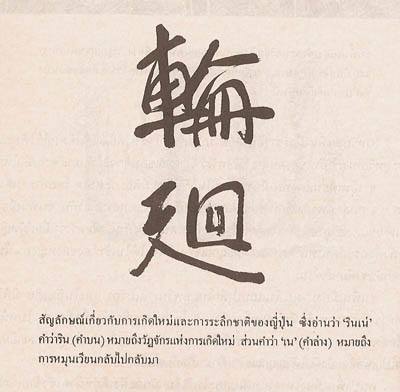 輪
廻
สัญลักษณ์เกี่ยวกับการเกิดใหม่และการระลึกชาติของญี่ปุ่น ซึ่งอ่านว่า ‘รินเน่’
คำว่าริน (คำบน) หมายถึงวัฏจักรแห่งการเกิดใหม่ ส่วนคำว่า ‘เน’ (คำล่าง) หมายถึง
การหมุนเวียนกลับไปกลับมา